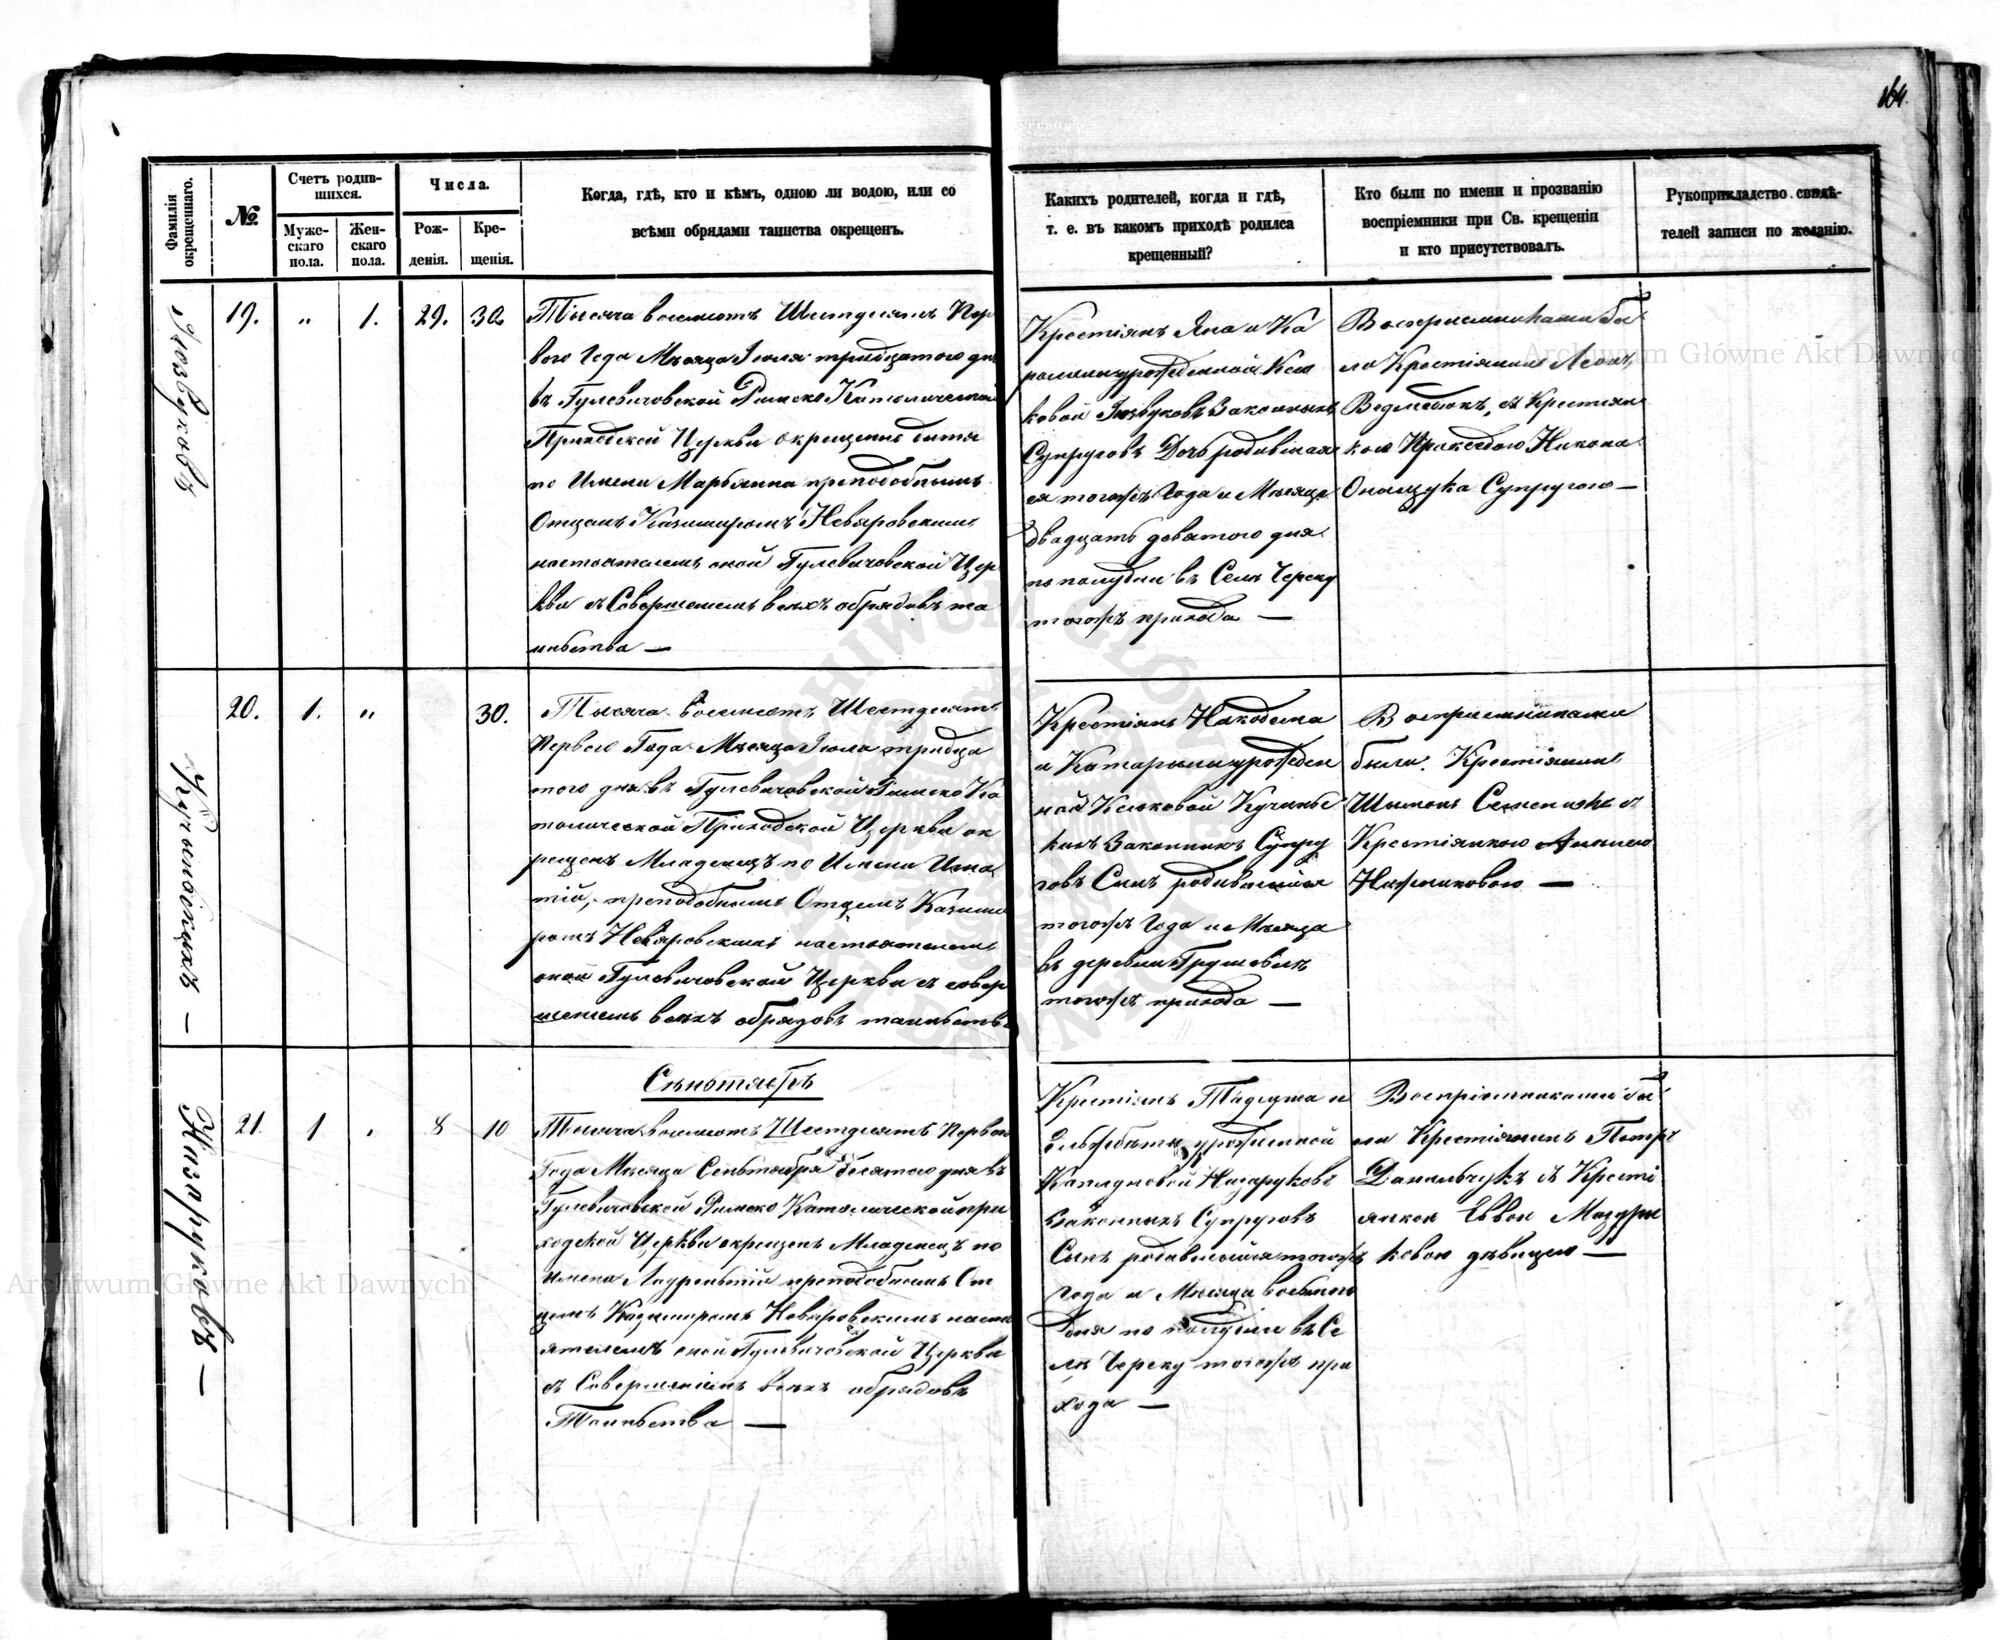 164.
Фамилія окрещеннаго.
№.
Счетъ родив-
шихся.
Муже-
скаго
пола.
Жен-
скаго
пола.
Числа.
Рож-
денія.
Кре-
щенія.
Когда, гдѣ, кто и кѣмъ, одною ли водою, или со
всѣми обрядами таинства окрещенъ.
Какихъ родителей, когда и гдѣ,
т. е. въ какомъ приходѣ родился
крещенный?
Кто были по имени и прозванію
воспріемники при Св. крещенія
и кто присутствовалъ.
Рукоприкладство свидѣ-
телей записи по желанію.
19. " 1. 29. 30
Тысяча восемсотъ Шестдесятъ Пер
вого Года Мѣсяца Іюля тридцатого дня
въ Гулевичовской Римско Католической
Приходской Церкви окрещено дитя
по Имени Марьянна преподобнымъ
Отцемъ Казимиромъ Невяровскимъ
настоятелемъ оной Гулевичовской Цер
кви съ Совершенiемъ всѣхъ обрядовъ та
инства —
Крестіянъ Яна и Ка
ролины урожденной
Законныхъ
Супруговъ Дочь родившая
ся тогожъ Года и Мѣсяца
двадцать девятого дня
по полудни въ Селѣ Череку
тогожъ прихода —
Воспріемниками бы
ли Крестіянинъ Леонъ
Ведмедюкъ, съ Крестіян
кою Пракседою Никона
Онищука Супругою —
Кучинскихъ —
20. 1. " 30.
Тысяча восемсотъ Шестдесятъ
Первого Года Мѣсяца Іюля тридца
того дня въ Гулевичовской Римско Ка
толической Приходской Церкви ок
рещенъ Младенецъ по Имени Игна
тій, преподобнымъ Отцемъ Казими
ромъ Невяровскимъ настоятелемъ
оной Гулевичовской Церкви съ совер
шенiемъ всѣхъ обрядовъ таинства
Крестіянъ Никодема
и Катарыны урожден
ной Клюковой Кучинс
кихъ Законныхъ Супру
говъ Сынъ родившійся
тогожъ Года и Мѣсяца
въ деревни Грушевкѣ
тогожъ прихода —
Воспріемниками
были: Крестіянинъ
Шимонъ Семенюкъ съ
Крестіянкою
—
Назаруковъ —
Сѣнтябръ
21. 1 " 8 10
Тысяча восемсотъ Шестдесятъ Первого
Года Мѣсяца Сентября десятого дня въ
Гулевичовской Римско Католической при
ходской Церкви окрещенъ Младенецъ по
имени Лаврентій преподобнымъ От
цемъ Казимиромъ Невяровскимъ насто
ятелемъ оной Гулевичовской Церкви
съ Совершеніемъ всѣхъ обрядовъ
Таинства —
Крестіянъ Тадеуша и
Ельжбѣты урожденной
Каплуновой Назаруковъ
Законныхъ Супруговъ
Сынъ родившійся тогожъ
Года и Мѣсяца восьмого
дня по полудни въ Се
лѣ Череку тогожъ при
хода —
Воспріемниками бы
ли Крестіянинъ Петръ
Данильчукъ съ Кресті
янкою Еввою Мазури
ковою дѣвицею —
Archiwum Główne Akt Dawnych
Archiwum Główne Akt Dawnych